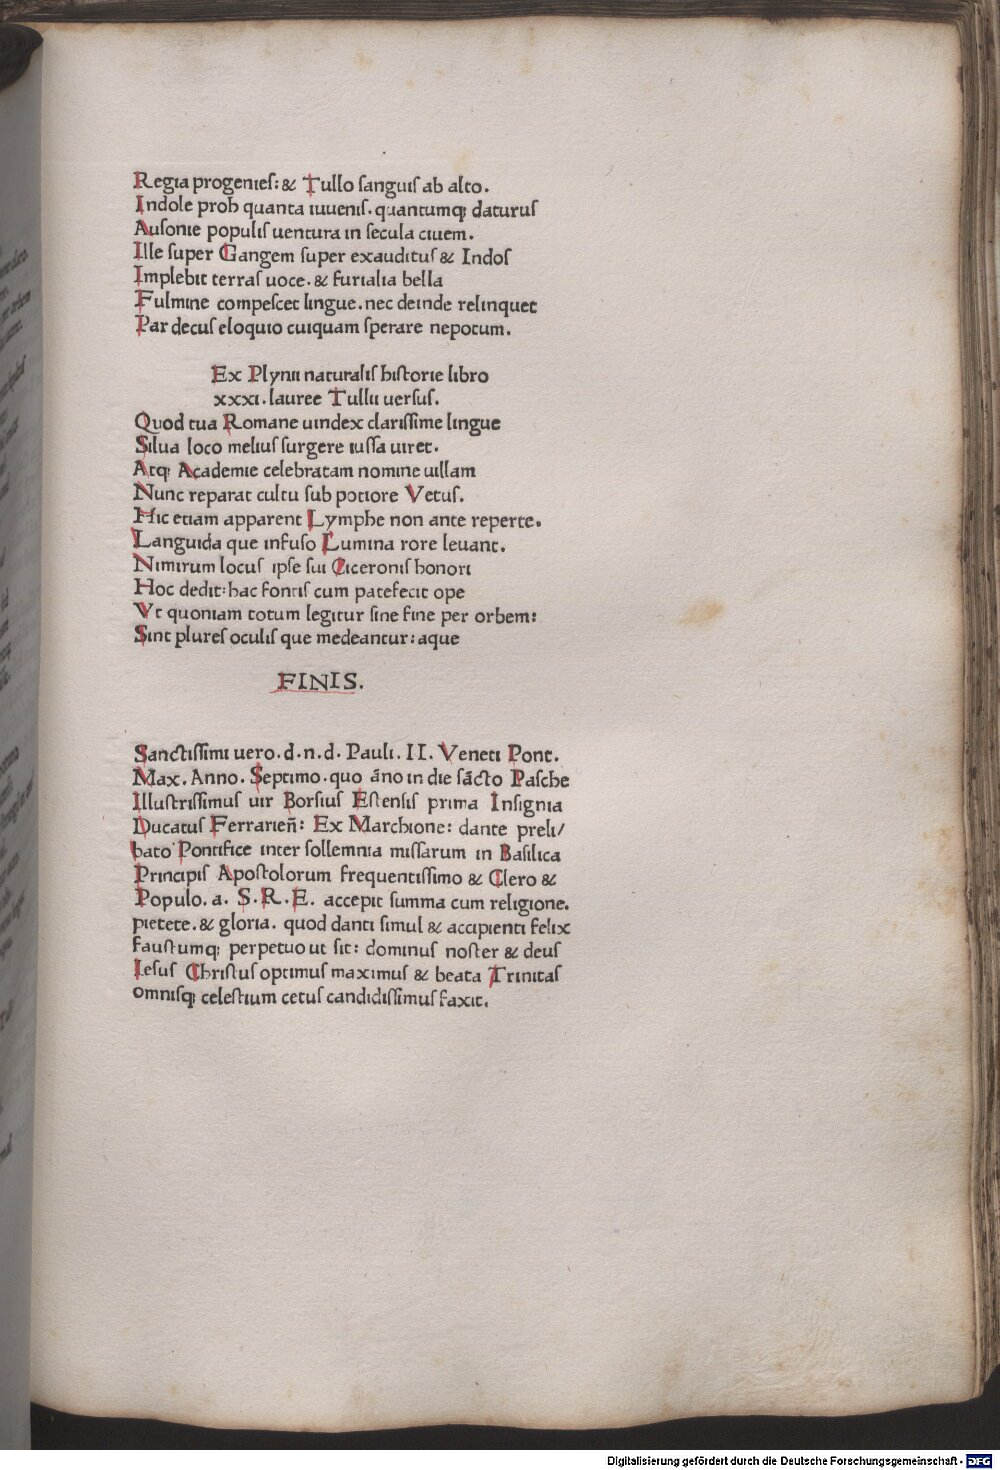 Regia progenies: & Tullo sanguis ab alto.
Indole proh quanta iuuenis. quantumq; daturus
Ausonie populis uentura in secula ciuem.
Ille super Gangem super exauditus & Indos
Implebit terras uoce. & furialia bella
Fulmine compescet lingue. nec deinde relinquet
Par decus eloquio cuiquam sperare nepotum.
Ex Plynii naturalis historie libro
xxxi. lauree Tullii uersus.
Quod tua Romane uindex clarissime lingue
Silua loco melius surgere iussa uiret.
Atq; Academie celebratam nomine uillam
Nunc reparat cultu sub potiore Vetus.
Hic etiam apparent Lymphe non ante reperte.
Languida que infuso Lumina rore leuant.
Nimirum locus ipse sui Ciceronis honori
Hoc dedit: hac fontis cum patefecit ope
Vt quoniam totum legitur sine fine per orbem:
Sint plures oculis que medeantur: aque
FINIS.
Sanctissimi uero. d. n. d. Pauli. II. Veneti Pont.
Max. Anno. Septimo. quo āno in die sācto Pasche
Illustrissimus uir Borsius Estensis prima Insignia
Ducatus Ferrarieñ: Ex Marchione: dante preli/
bato Pontifice inter sollemnia missarum in Basilica
Principis Apostolorum frequentissimo & Clero &
Populo. a. S. R. E. accepit summa cum religione.
pietete. & gloria. quod danti simul & accipienti felix
faustumq; perpetuo ut sit: dominus noster & deus
Iesus Christus optimus maximus & beata Trinitas
omnisq; celestium cetus candidissimus faxit.
Digitalisierung gefördert durch die Deutsche Forschungsgemeinschaft - DFG